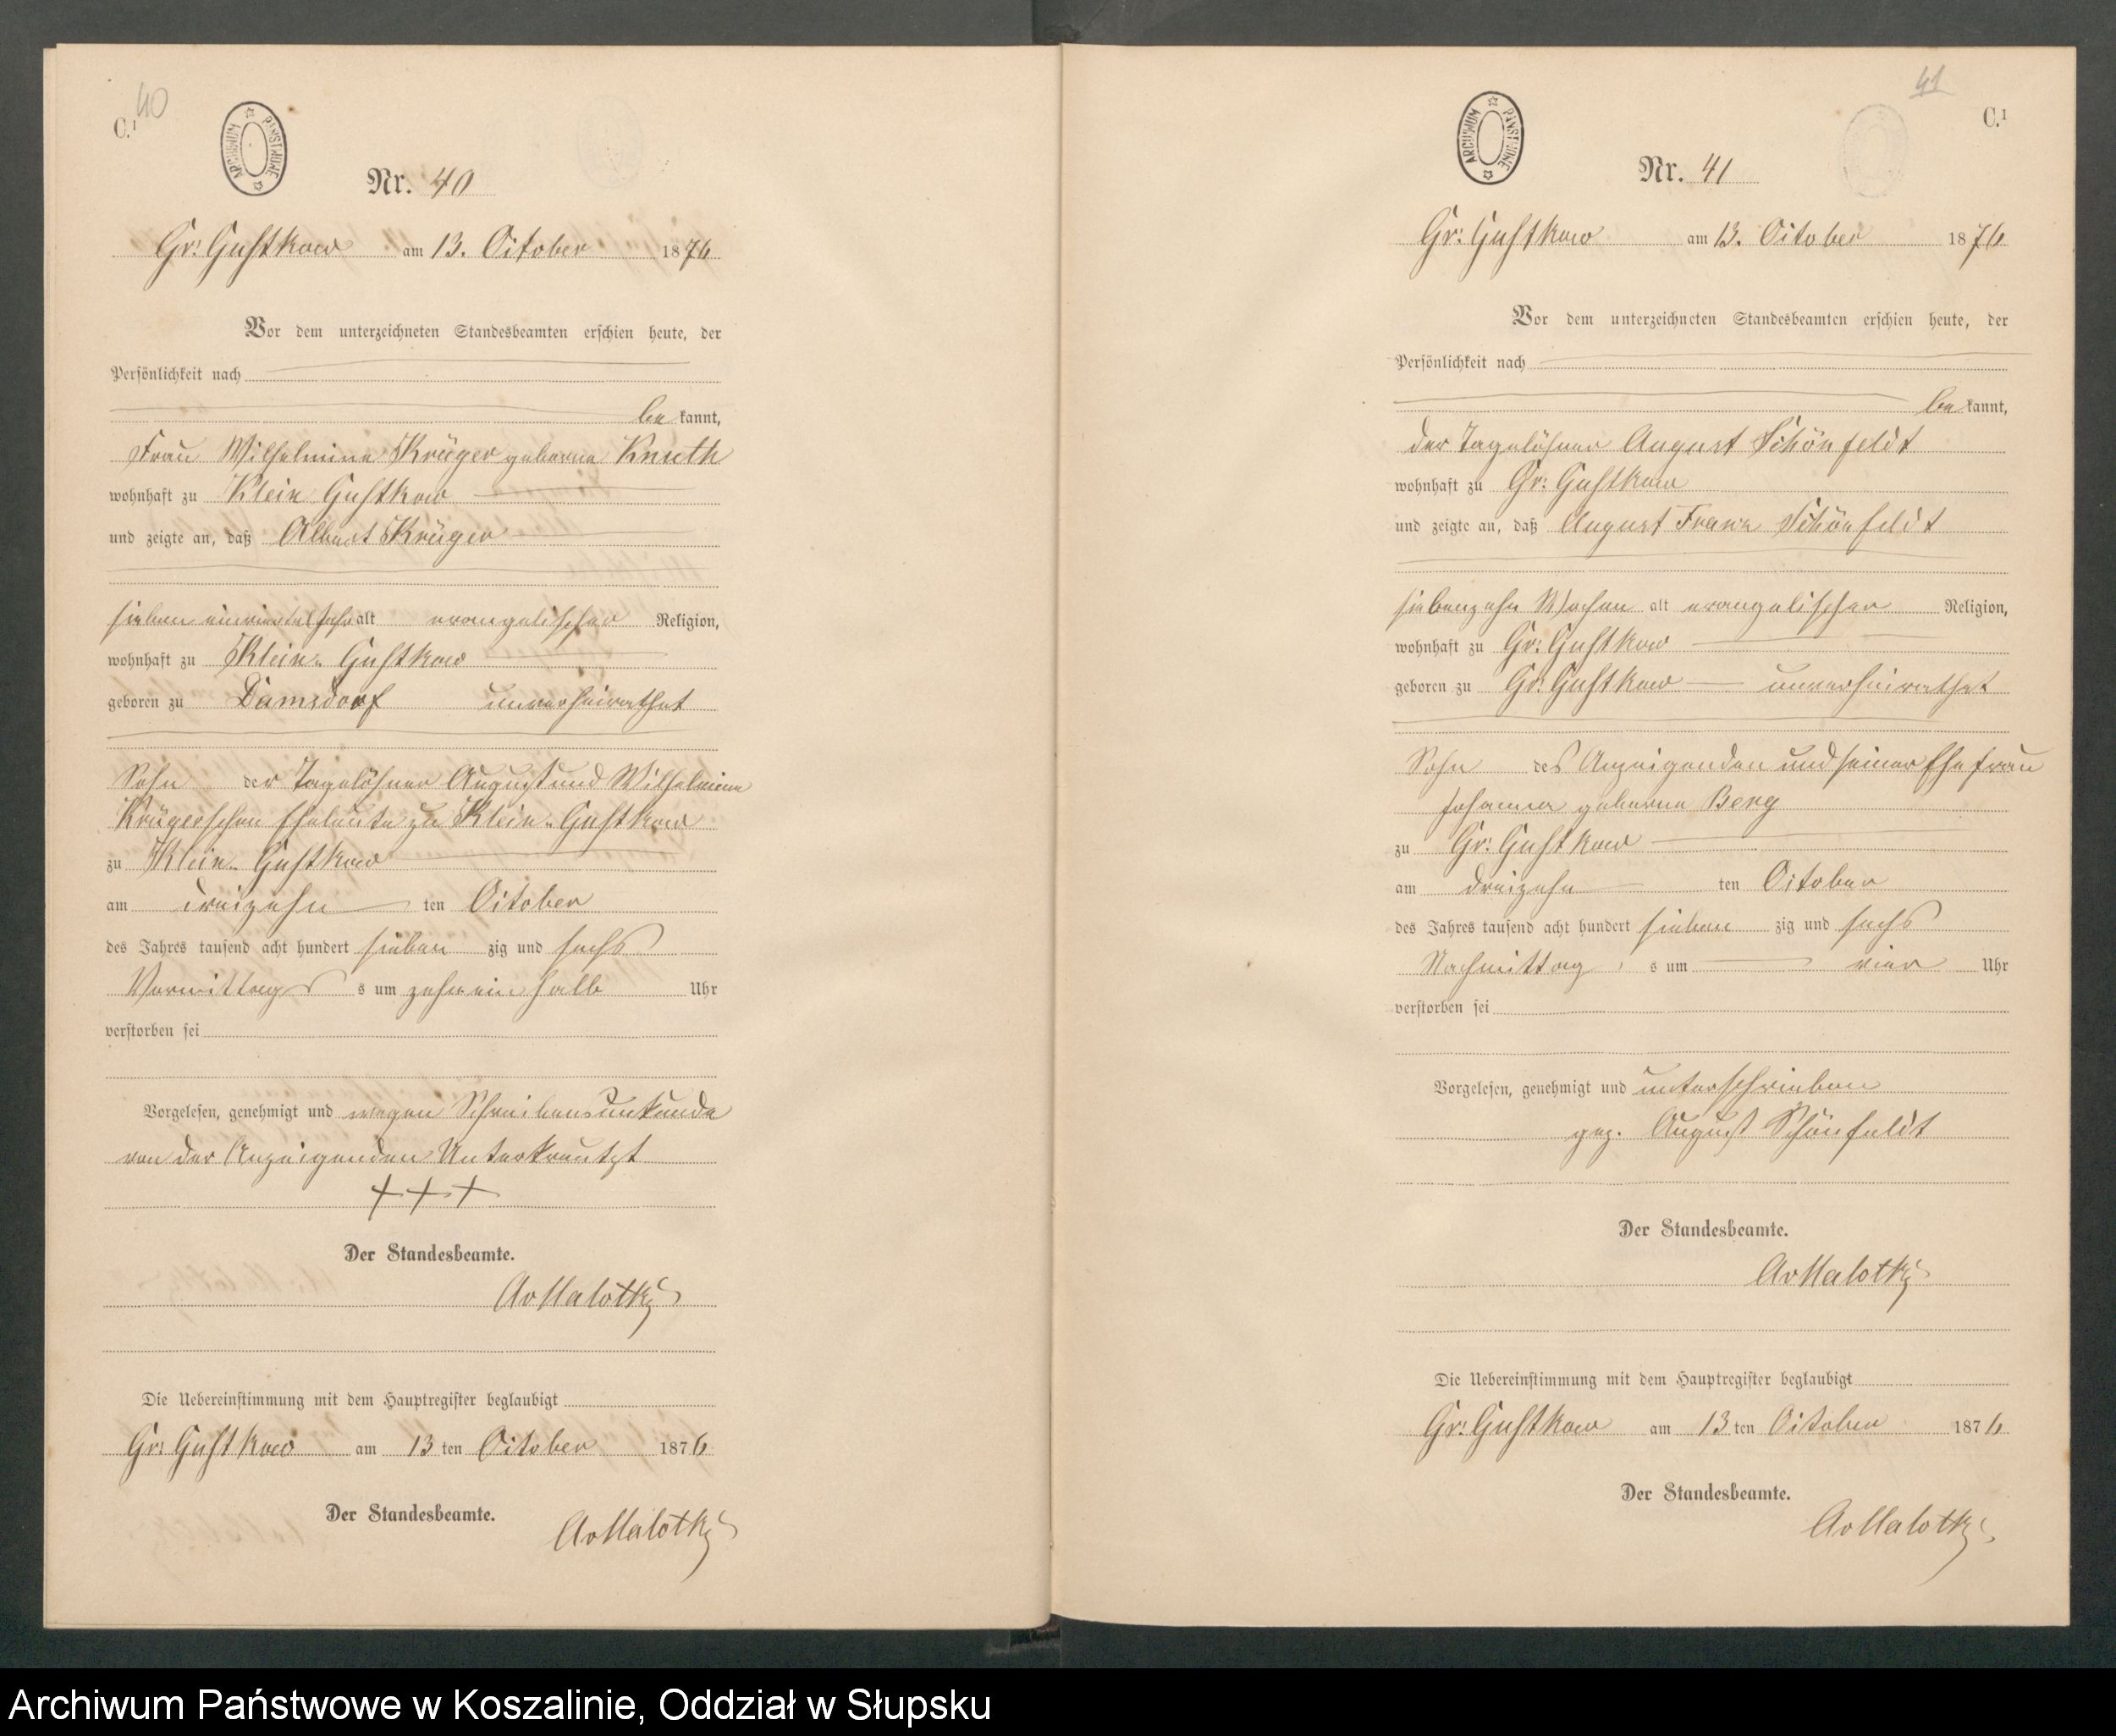 40
C.¹
ARCHIWUM PAŃSTWOWE
Nr. 40
Gr: Gustkow am 13. October 1876
Vor dem unterzeichneten Standesbeamten erschien heute, der
Persönlichkeit nach
be kannt,
Frau Wilhelmine Krüger geborne Knuth
wohnhaft zu Klein Gustkow
und zeigte an, daß Albert Krüger
sieben einviertel Jahr alt evangelischer Religion,
wohnhaft zu Klein-Gustkow
geboren zu Damsdorf unverheirathet
Sohn der Tagelöhner August und Wilhelmine
Krügerschen Eheleute zu Klein-Gustkow
zu Klein-Gustkow
am dreizehn ten October
des Jahres tausend acht hundert sieben zig und sechs
Vormittags s um zehn ein halb Uhr
verstorben sei
Vorgelesen, genehmigt und wegen Schreibensunkunde
von der Anzeigenden Unterkreutzt
+++
Der Standesbeamte.
AvMalotky
Die Uebereinstimmung mit dem Hauptregister beglaubigt
Gr: Gustkow am 13 ten October 1876
Der Standesbeamte.
AvMalotky
41
C.¹
ARCHIWUM PAŃSTWOWE
Nr. 41
Gr: Gustkow am 13. October 1876
Vor dem unterzeichneten Standesbeamten erschien heute, der
Persönlichkeit nach
be kannt,
der Tagelöhner August Schönfeldt
wohnhaft zu Gr: Gustkow
und zeigte an, daß August Franz Schönfeldt
siebenzehn Wochen alt evangelischer Religion,
wohnhaft zu Gr: Gustkow
geboren zu Gr: Gustkow unverheirathet
Sohn des Anzeigenden und seiner Ehefrau
Johanna geborne Berg
zu Gr: Gustkow
am dreizehn ten October
des Jahres tausend acht hundert sieben zig und sechs
Nachmittag s um vier Uhr
verstorben sei
Vorgelesen, genehmigt und unterschrieben
gez. August Schönfeldt
Der Standesbeamte.
AvMalotky
Die Uebereinstimmung mit dem Hauptregister beglaubigt
Gr: Gustkow am 13 ten October 1876
Der Standesbeamte.
AvMalotky
Archiwum Państwowe w Koszalinie, Oddział w Słupsku